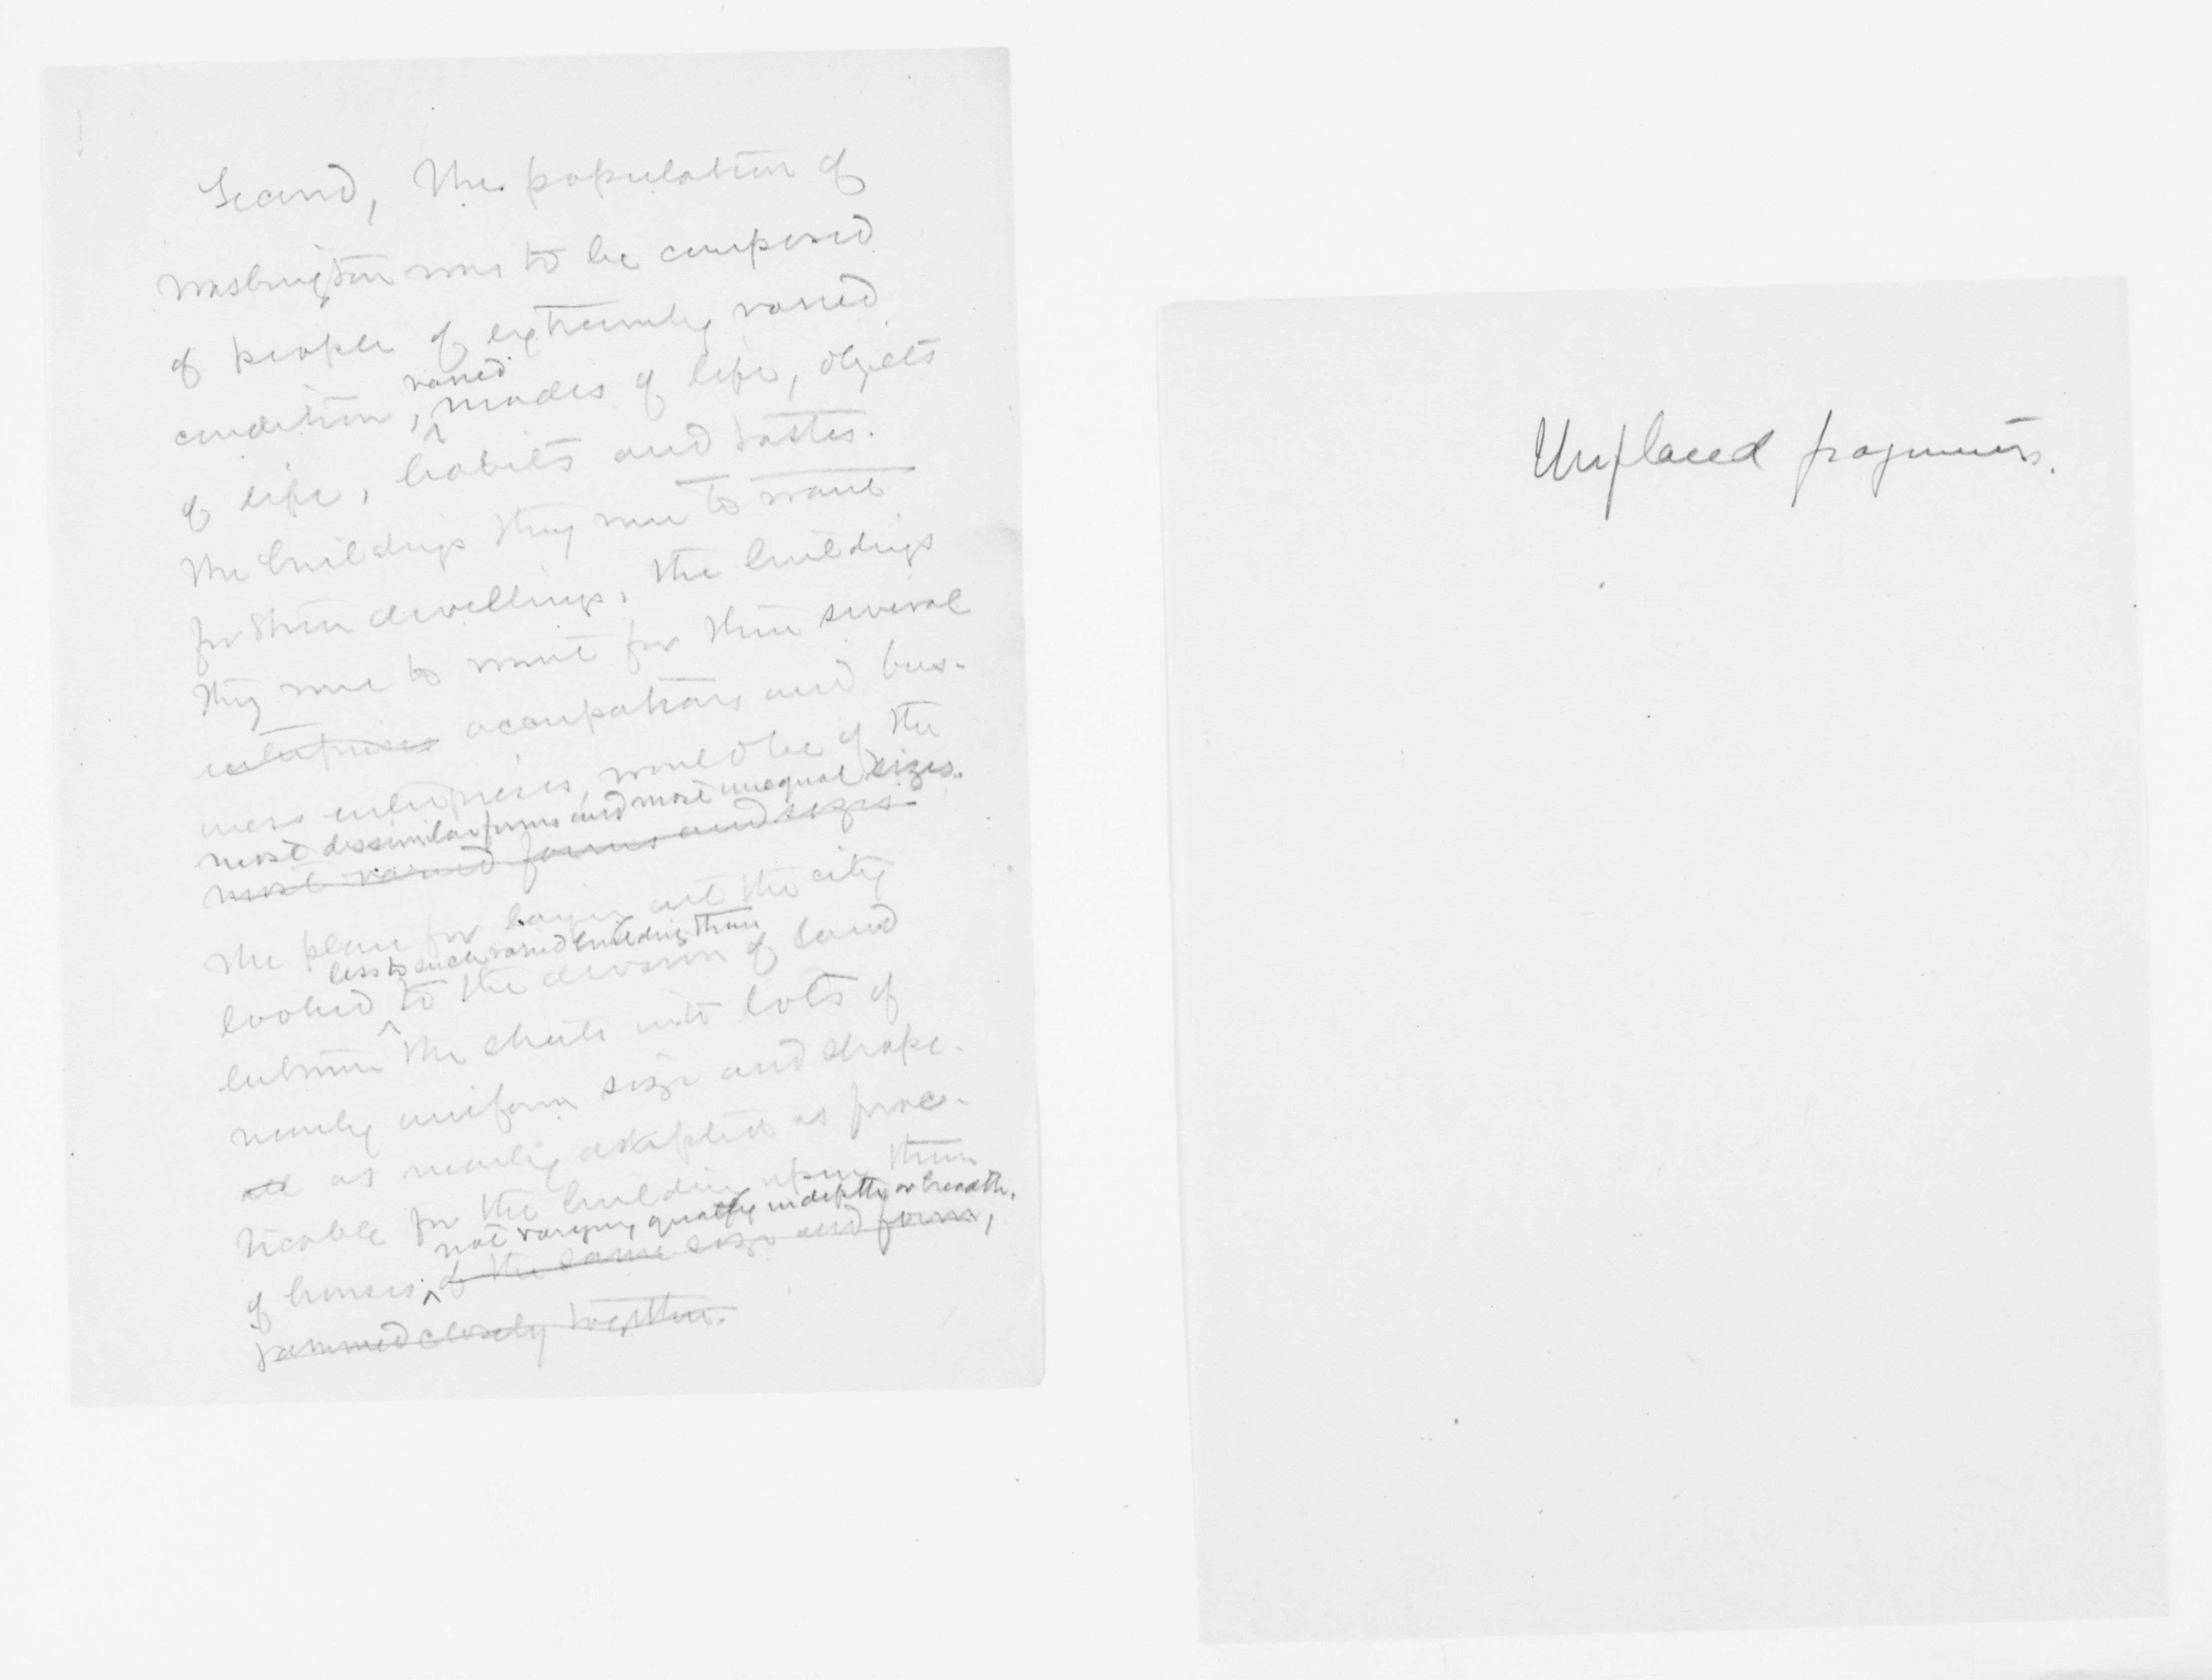 Second, The population of
Washington was to be composed
of people of extremely varied
varied
condition, modes of life, objects
of life, habits and tastes.
The buildings they were to want
for their dwellings, the buildings
they were to want for their several
enterprises occupations and bus-
iness enterprises, would be of the
most dissimilar forms and most unequal sizes.
most varied forms and sizes.
The plan for laying out the city
less to such varied building than
looked to the division of land
between the streets into lots of
nearly uniform size and shape.
all as nearly adapted as prac-
ticable for the building upon them
not varying greatly in depth or breadth.
of houses of the same size and form,
jammed closely together.
Unplaced fragments.